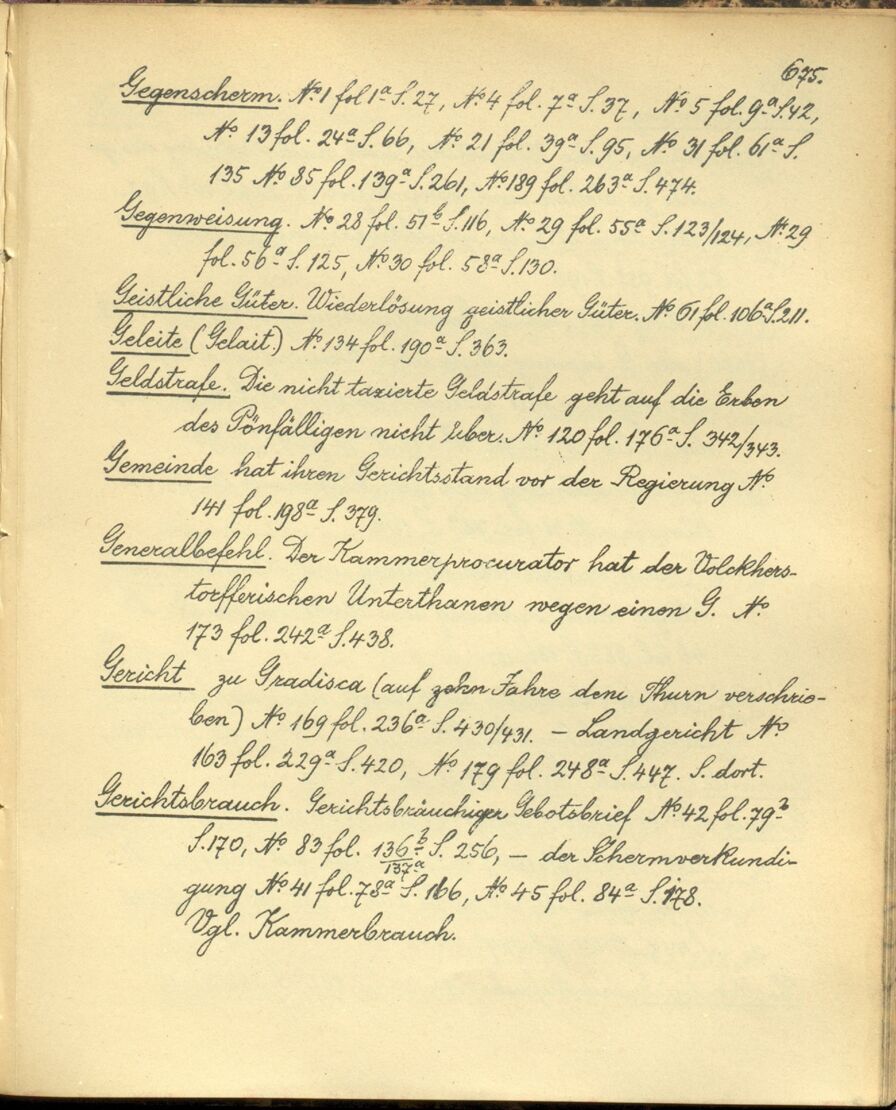 675.
Gegenscherm. No. 1 fol 1a S. 27, No. 4 fol. 7a S. 37, No. 5 fol. 9a S. 42,
No. 13 fol. 24a S. 66, No. 21 fol. 39a S. 95, No. 31 fol. 61a S.
135 No. 85 fol. 139a S. 261, No. 189 fol. 263a S. 474.
Gegenweisung. No. 28 fol. 51b S. 116, No. 29 fol. 55a S. 123/124, No. 29
fol. 56a S. 125, No. 30 fol. 58a S. 130.
Geistliche Güter. Wiederlösung geistlicher Güter. No. 61 fol. 106a S. 211.
Geleite (Gelait.) No. 134 fol. 190a S. 363.
Geldstrafe. Die nicht taxierte Geldstrafe geht auf die Erben
des Pönfälligen nicht über. No. 120 fol. 176a S. 342/343.
Gemeinde hat ihren Gerichtsstand vor der Regierung No.
141 fol. 198a S. 379.
Generalbefehl. Der Kammerprocurator hat der Volckhers-
torfferischen Unterthanen wegen einen G. No.
173 fol. 242a S. 438.
Gericht zu Gradisca (auf zehn Jahre dem Thurn verschrie-
ben) No. 169 fol. 236a S. 430/431. – Landgericht No.
163 fol. 229a S. 420, No. 179 fol. 248a S. 447. S. dort.
Gerichtsbrauch. Gerichtsbräuchiger Gebotsbrief No. 42 fol. 79b
S. 170, No. 83 fol. 136b/137a S. 256, – der Schermverkündi-
gung No. 41 fol. 78a S. 166, No. 45 fol. 84a S. 178.
Vgl. Kammerbrauch.